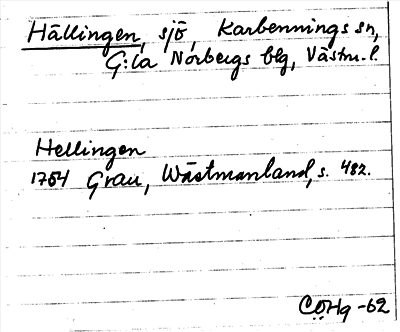 Hällingen, sjö, Karbennings sn,
G:la Norbergs blg, Västm.l.
Hellingen
1754 Grau, Wästmanland, s. 482.
CÖHg -62